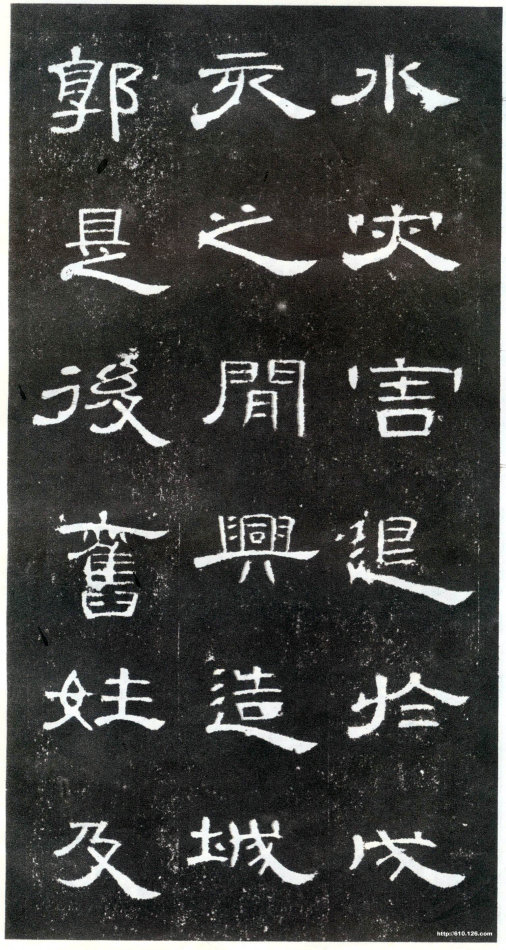 水灾害退於戌
亥之間興造城
郭是後舊姓及
http://610.126.com